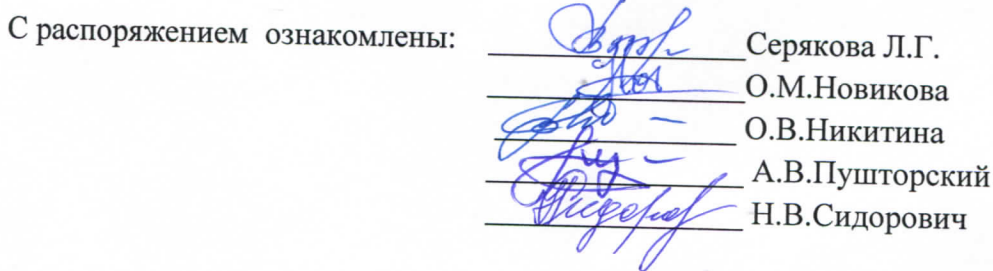 С распоряжением ознакомлены: Серякова Л.Г.
О.М.Новикова
О.В.Никитина
А.В.Пушторский
Н.В.Сидорович